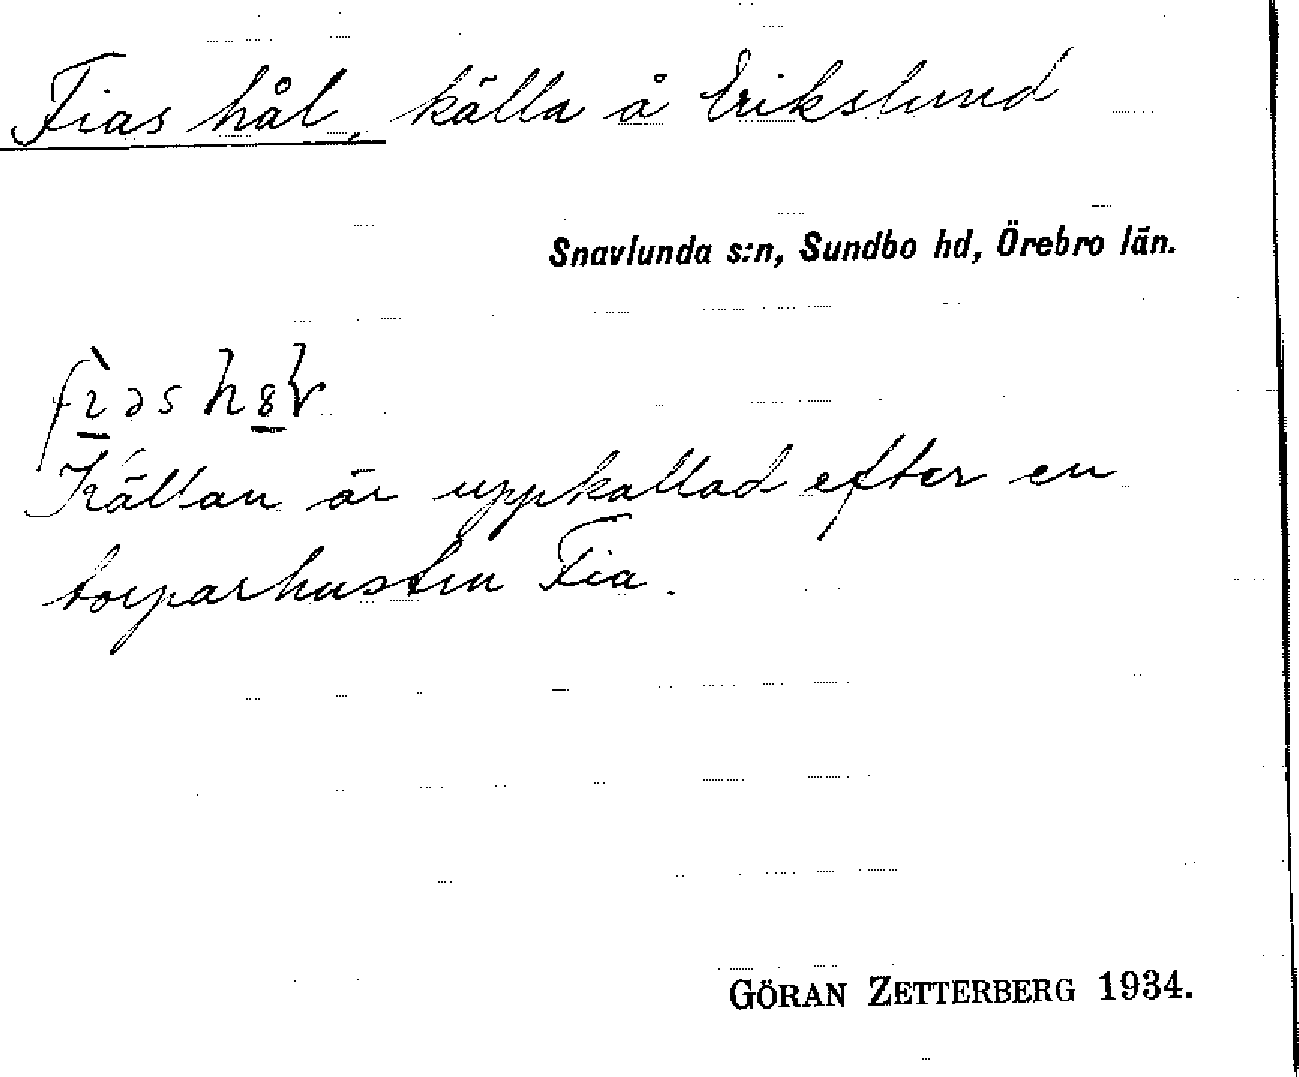 Fias hål, källa å Erikslund
Snavlunda s:n, Sundbo hd, Örebro län.
Källan är uppkallad efter en
torparhustru Fia.
GÖRAN ZETTERBERG 1934.